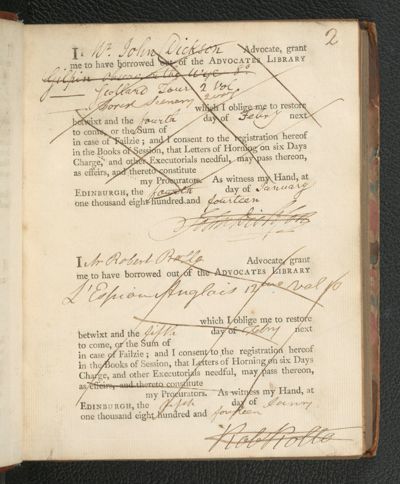 2
I Mr. John Dickson Advocate, grant
me to have borrowed out of the ADVOCATES LIBRARY
Gilpin observ. on the Wye 8o
Scotland Tour 2 Vol
Forest Scenery
which I oblige me to restore
betwixt and the fourth day of Febry next
to come, or the Sum of
in case of Failzie; and I consent to the registration hereof
in the Books of Session, that Letters of Horning on six Days
Charge, and other Executorials needful, may pass thereon,
as effeirs, and thereto constitute
my Procurators. As witness my Hand, at
EDINBURGH, the fourth day of January
one thousand eight hundred and fourteen
John Dickson
I Mr Robert Rolla Advocate, grant
me to have borrowed out of the ADVOCATES LIBRARY
L'Espion Anglais 12mo vol
which I oblige me to restore
betwixt and the fifth day of Febry next
to come, or the Sum of
in case of Failzie; and I consent to the registration hereof
in the Books of Session, that Letters of Horning on six Days
Charge, and other Executorials needful, may pass thereon,
as effeirs, and thereto constitute
my Procurators. As witness my Hand, at
EDINBURGH, the fifth day of Janry
one thousand eight hundred and fourteen
Rob Rolla